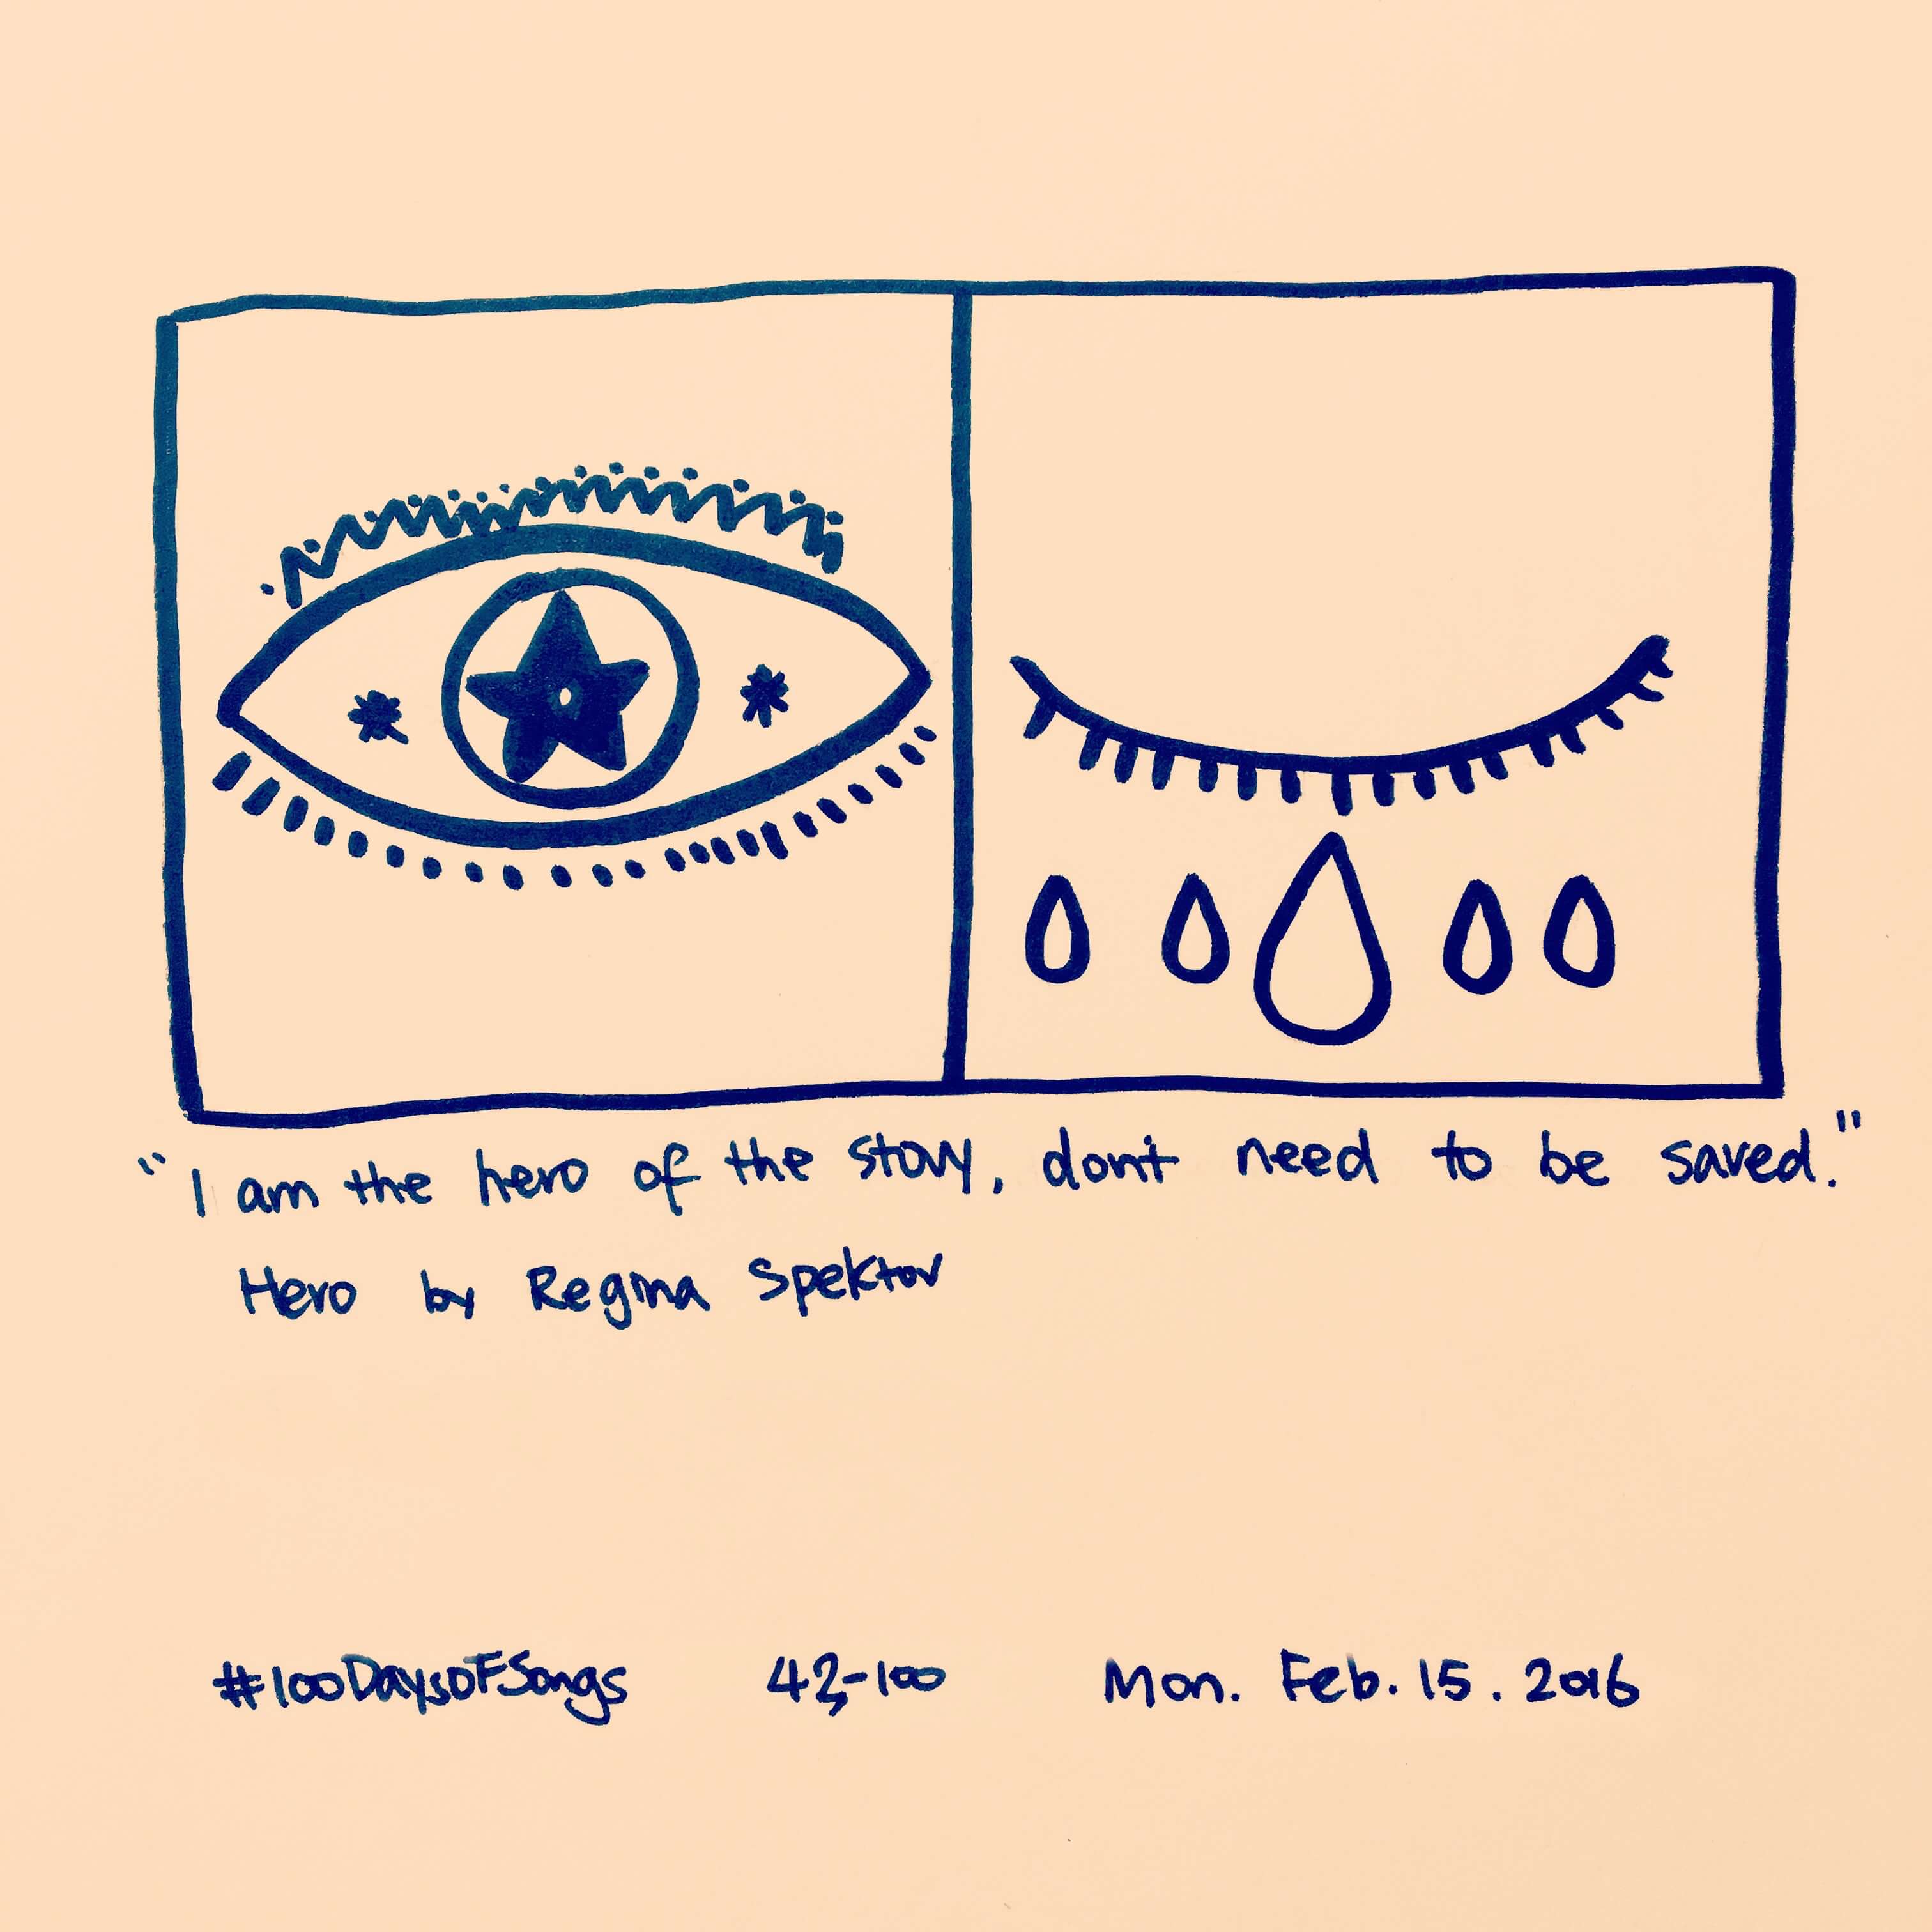 "I am the hero of the story, don't need to be saved."
Hero by Regina Spektor
#100DaysOfSongs 42-100 Mon. Feb. 15. 2016